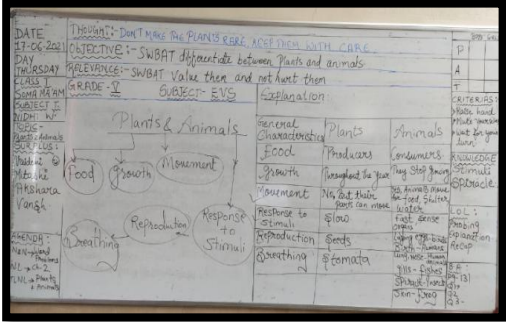 DATE
17-06-2021
DAY
THURSDAY
CLASS I
SOMA MA'AM
SUBJECT I
NIDHI
TOPIC:-
Plants & Animals
SURPLUS:-
Mitashi
Akshara
Vansh
AGENDA:-
THOUGHT:- DON'T MAKE THE PLANTS RARE, KEEP THEM WITH CARE
OBJECTIVE:- SWBAT differentiate between Plants and animals
RELEVANCE:- SWBAT Value them and not hurt them
GRADE - V SUBJECT- EVS
Plants & Animals
Food
Growth
Movement
Breathing
Reproduction
Response
to
Stimuli
Explanation:
General Characteristics Plants Animals
Food Producers Consumers
Growth Throughout the year They Stop Growing
Movement No, But their parts can move Yes, Animals move for food, Shelter, water
Response to Stimuli Slow Fast, Sense organs
Reproduction Seeds Laying eggs - birds
Birth - Humans
Breathing Stomata Lung, nose - Human, animals
Gills - Fishes
Spiracle - Insects
Skin - frog
P
A
T
CRITERIAS:
Raise hand
Mute yourself
Wait for your
turn
KNOWLEDGE
Stimuli
Spiracle
L.O.L:
Probing
Explanation
Recap